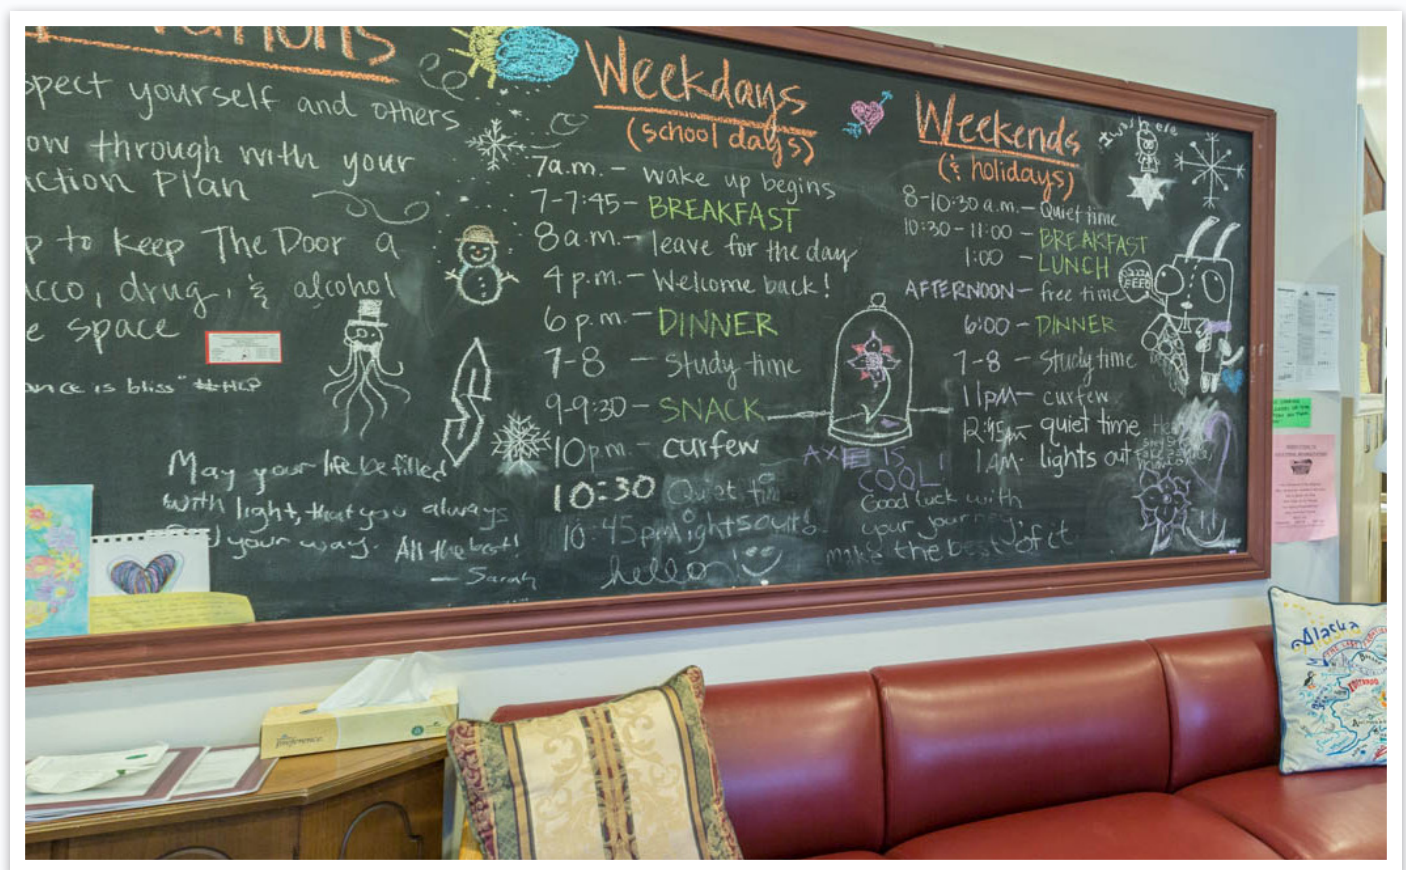 spect yourself and others
ow through with your
Action Plan
p to keep The Door a
acco, drug, & alcohol
e space
ance is bliss" #HLP
May your life be filled
with light, that you always
your way. All the best!
— Sarah
Weekdays
(school days)
7a.m. — wake up begins
7-7:45 - BREAKFAST
8a.m. — leave for the day
4p.m. — Welcome back!
6p.m. — DINNER
7-8 — Study time
9-9:30 - SNACK
10pm. curfew
10:30 Quiet time
10:45pm lights out!
hello
Weekends
(& holidays)
8-10:30 a.m. — Quiet time
10:30-11:00 — BREAKFAST
1:00 — LUNCH
AFTERNOON — free time
6:00 — DINNER
7-8 — Study time
11pm — curfew
12:45am quiet time
1am. lights out
I was here
AXE IS
COOL!
Good luck with
your journey
make the best of it
Preference
Alaska